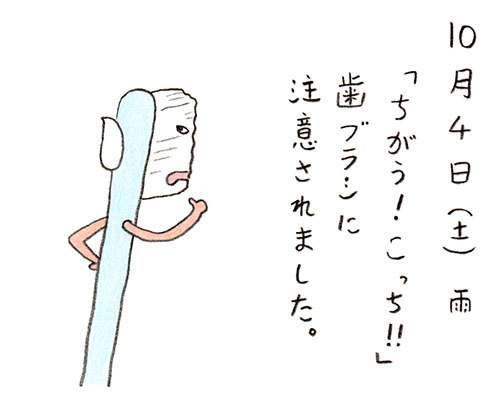 10月4日(土) 雨
「ちがう!こっち!!」
歯ブラシに
注意されました。